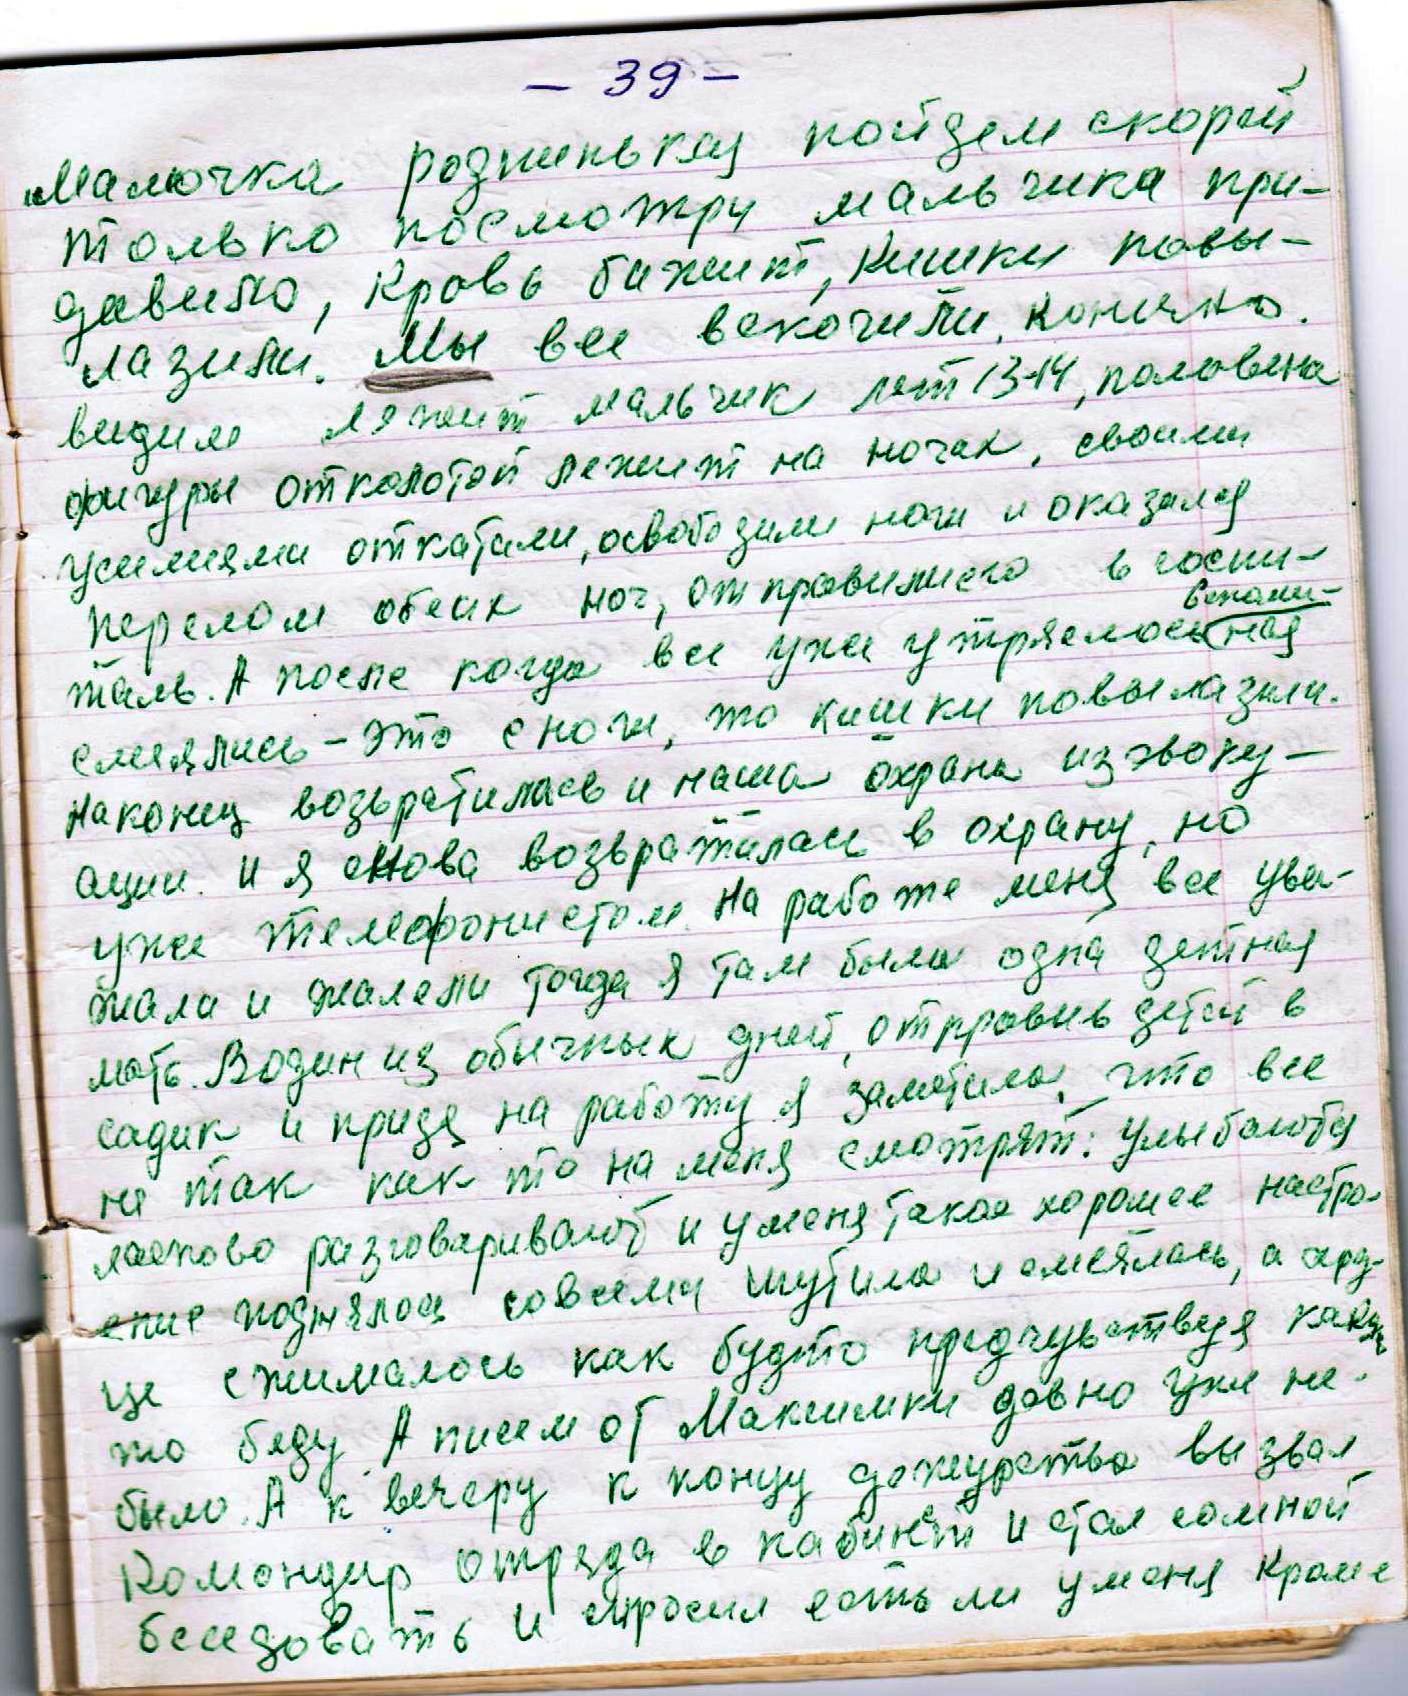 — 39 —
Мамочка родненькая пойдем скорей
только посмотри мальчика при-
давило, Кровь бажит, Кишки повы-
лазили. Мы все вскочили. Конечно.
видим лежит мальчик лет 13-14, половина
фигуры отколотой лежит на ногах, своими
усилиями откатали, освободили ноги и оказался
перелом обеих ног, отправили его в госпи-
таль. А после когда все уже утряслось вспоми-
ная
смеялись — это с ноги, то кишки повылазили.
Наконец возвратилась и наша охрана из эваку-
ации. И я снова возвратилась в охрану, но
уже телефонистом. На работе меня все ува-
жали и жалели тогда я там была одна детная
мать. В один из обычных дней, отправив детей в
садик и придя на работу я заметила, что все
не так как то на меня смотрят: улыбаются
ласково разговаривают и у меня такое хорошее настро-
ение поднялось со всеми шутила и смеялась, а серд-
це сжималось как будто предчувствуя какую
то беду. А писем от Максимки давно уже не
было. А к вечеру к концу дежурства вызвал
Командир отряда в кабинет и стал со мной
беседовать и спросил есть ли у меня кроме